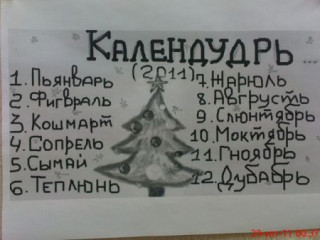 КАЛЕНДУДРЬ ...
(2011)
1. Пьянварь
2. Фигвраль
3. Кошмарт
4. Сопрель
5. Сымай
6. Теплюнь
7. Жарюль
8. Авгрусть
9. Слюнтябрь
10. Моктябрь
11. Гноябрь
12. Дубабрь